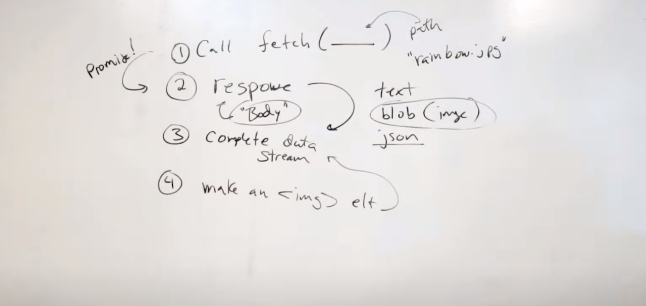 Promise!
① Call fetch(___) path
"rainbow.jpg"
② response
"Body"
text
blob (image)
json
③ Complete data
stream
④ make an <img> elt